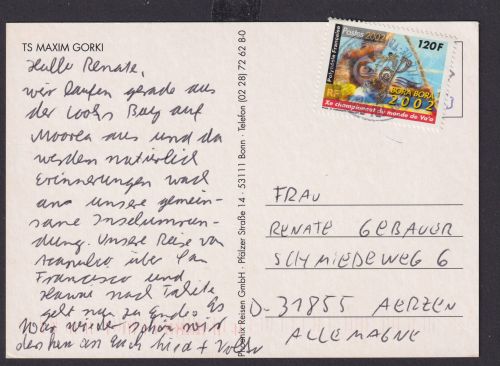 TS MAXIM GORKI
Hallo Renate,
wir laufen gerade aus
der Cooks Bay auf
Moorea aus und da
werden natürlich
Erinnerungen wach
ans unsere gemein-
same Inselumrun-
dung. Unsere Reise von
Acapulco über San
Francisco und
Hawai nach Tahiti
geht nun zu Ende. Es
war wieder schön und
denken an Euch
Phoenix Reisen GmbH · Pfälzer Straße 14 · 53111 Bonn · Telefon (02 28) 72 62 80
Polynésie Française
Postes 2002
120F
RF
BORA BORA
2002
Xe championnat du monde de Va'a
FRAU
RENATE GEBAUER
SCHMIEDEWEG 6
D-31855 AERZEN
ALLEMAGNE